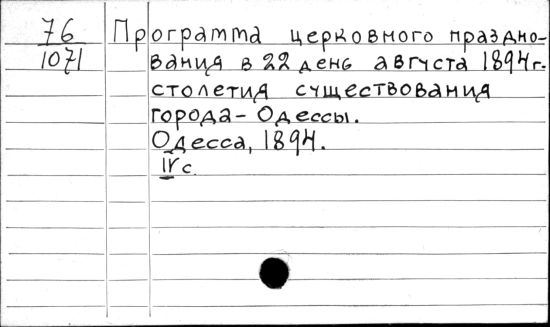 76 Программа церковного праздно-
1071 вания в 22 день августа 1894г.
столетия существования
города-Одессы.
Одесса, 1894.
IV с.